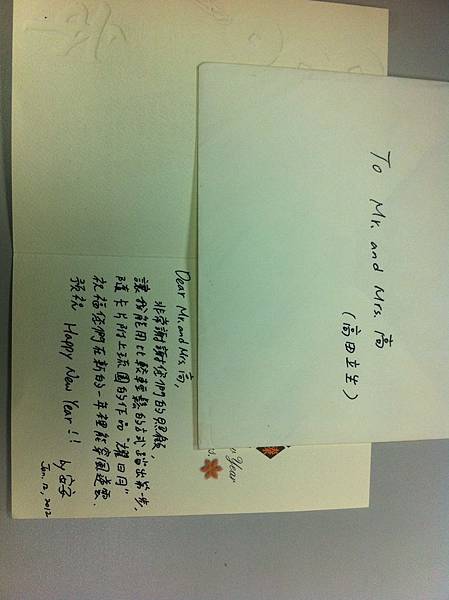 To Mr. and Mrs. 高
(高田立生)
Dear Mr. and Mrs. 高,
非常謝謝您們的照顧,
讓我能用比較輕鬆的方式踏出第一步,
隨卡片附上琉園的作品"耀日月"
祝福您們在新的一年裡能
預祝 Happy New Year!!
by
Jan. 12, 2012
Year